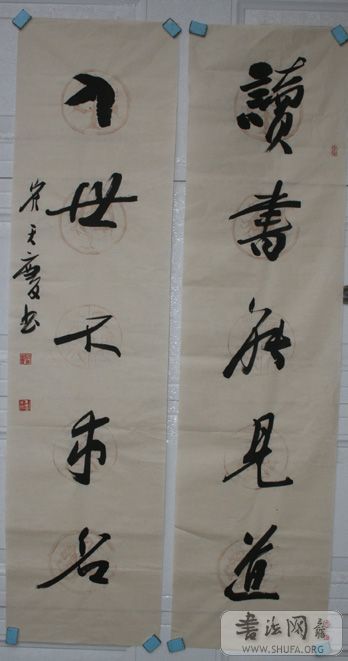 讀書能見道
入世不求名
崔天慶书
書法网
WWW.SHUFA.ORG